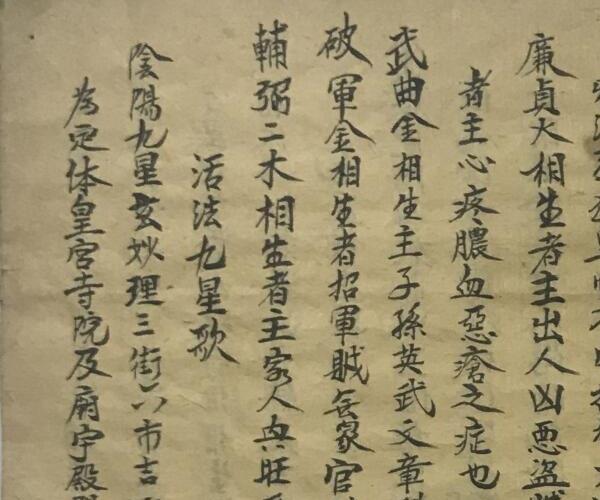 廉貞火相生者主出人凶恶盗
者主心疼膿血惡瘡之症也
武曲金相生主子孫英武文章
破軍金相生者招軍賊兵家官
輔弼二木相生者主家人興旺
活法九星歌
陰陽九星玄妙理三街六市吉
為定体皇宮寺院及廟宇殿